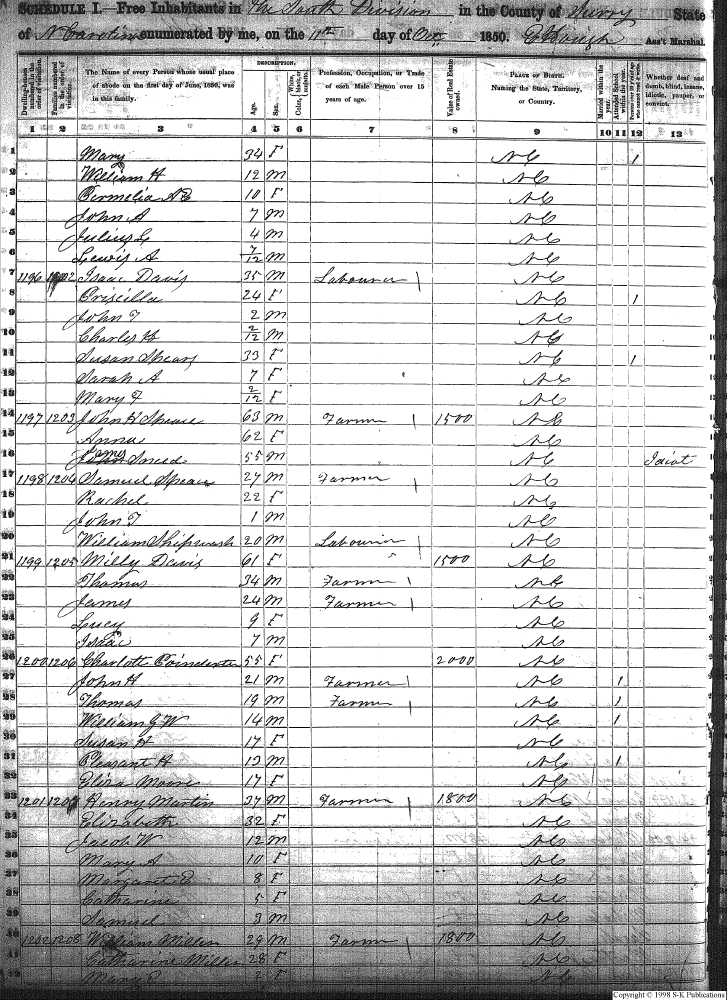 SCHEDULE I.—Free Inhabitants in The South Division in the County of Surry State
of N Carolina enumerated by me, on the 11th day of Oct 1850. Ass't Marshal.
Dwelling-houses numbered in the order of visitation.
Families numbered in the order of visitation.
The Name of every Person whose usual place of abode on the first day of June, 1850, was in this family.
DESCRIPTION.
Age.
Sex.
Color, White, black, or mulatto.
Profession, Occupation, or Trade of each Male Person over 15 years of age.
Value of Real Estate owned.
PLACE OF BIRTH.
Naming the State, Territory, or Country.
Married within the year.
Attended School within the year.
Whether deaf and dumb, blind, insane, idiotic, pauper, or convict.
1 2 3 4 5 6 7 8 9 10 11 12 13
1 Mary 34 F NC 1
2 William H 12 M NC
3 Permelia A E 10 F NC
4 John A 7 M NC
5 Julius L 4 M NC
6 Lewis A 7/12 M NC
7 1196 1202 Isaac Davis 35 M Labourer NC
8 Priscilla 24 F NC 1
9 John T 2 M NC
10 Charles H 2/12 M NC
11 Susan Spears 33 F NC 1
12 Sarah A 7 F NC
13 Mary F 2/12 F NC
14 1197 1203 John H Spease 63 M Farmer 1500 NC
15 Anna 62 F NC
16 Sneed 55 M NC Idiot
17 1198 1204 Samuel Spease 27 M Farmer NC
18 Rachel 22 F NC
19 John T 1 M NC
20 William Shipwash 20 M Labourer NC
21 1199 1205 Milly Davis 61 F 1500 NC
22 Thomas 34 M Farmer NC
23 James 24 M Farmer NC
24 Lucy 9 F NC
25 Isaac 7 M NC
26 1200 1206 Charlott Poindexter 55 F 2000 NC
27 John H 21 M Farmer NC 1
28 Thomas 19 M Farmer NC 1
29 William G W 14 M NC 1
30 Susan H 17 F NC
31 Pleasant H 13 M NC 1
32 Eliza Moore 17 F NC
33 1201 1207 Henry Martin 37 M Farmer 1800 NC
34 Elizabeth 32 F NC
35 Jacob W 12 M NC
36 Mary A 10 F NC
37 Margaret E 8 F NC
38 Catharine 5 F NC
39 Samuel 3 M NC
40 1202 1208 William Miller 29 M Farmer 1800 NC
41 Catharine Miller 28 F NC
42 Mary E 2 F NC
Copyright © 1998 S-K Publications